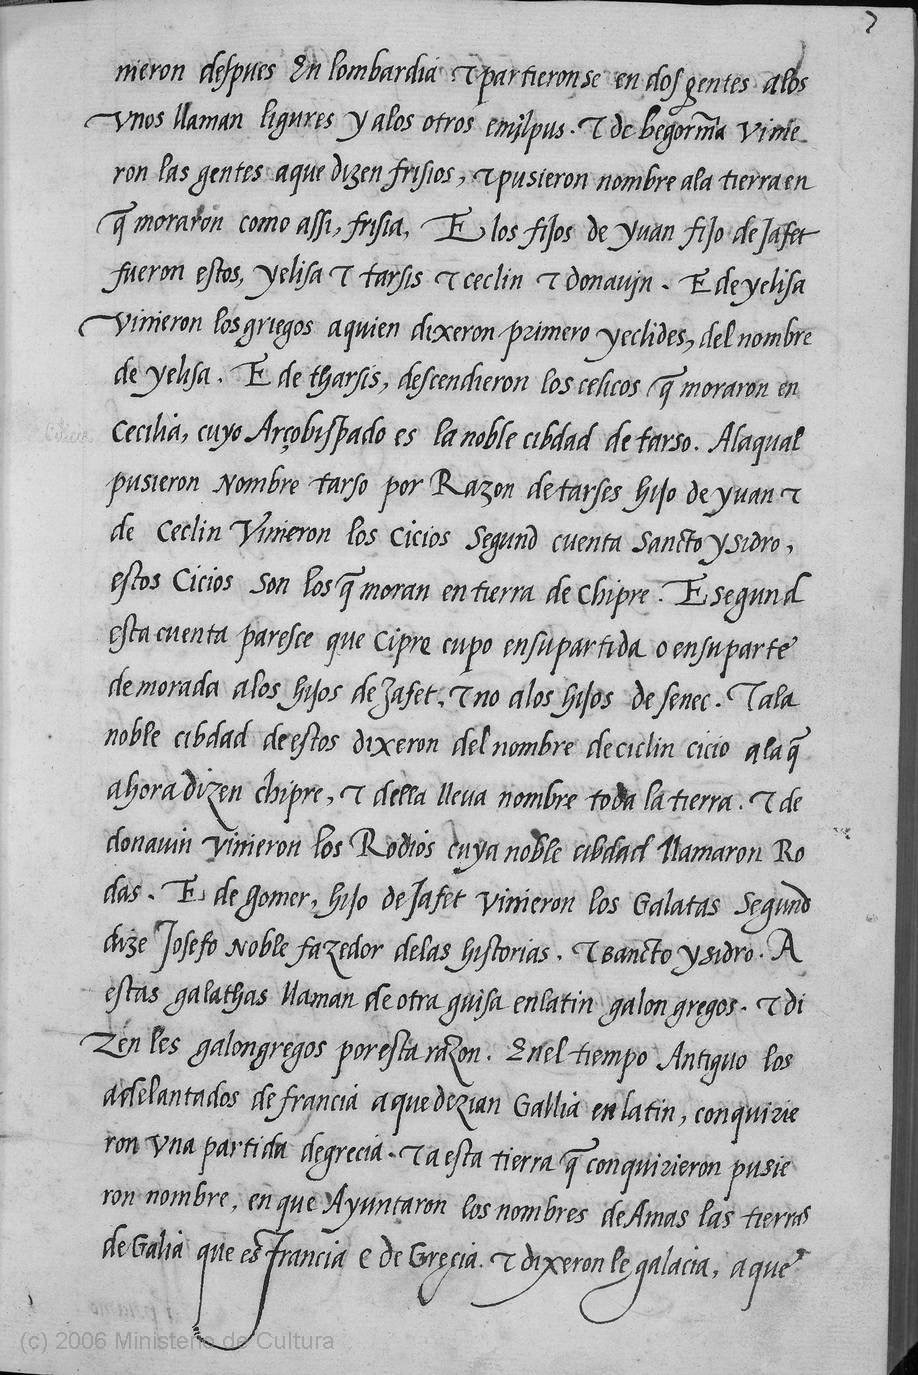 7
nieron despues En lombardia τ partieronse en dos gentes alos
vnos llaman ligures y alos otros emilpus. τ de begorma vinie
ron las gentes aque dizen frisios, τ pusieron nombre ala tierra en
q̃ moraron como assi, frisia, E los fijos de yuan fijo de Jafet
fueron estos, yelisa τ tarsis τ ceclin τ donauin. E de yelisa
vinieron los griegos aquien dixeron primero yeclides, del nombre
de yelisa. E de tharsis, descendieron los celicos q̃ moraron en
Cecilia, cuyo Arçobispado es la noble cibdad de tarso. Alaqual
pusieron Nombre tarso por Razon de tarses hijo de yuan τ
de Ceclin Vinieron los Cicios Segund cuenta Sancto ysidro,
estos Cicios son los q̃ moran en tierra de Chipre. E segund
esta cuenta paresce que Cipre cupo ensupartida o ensuparte
de morada alos hijos de Zafet, τ no alos hijos de senec. τ ala
noble cibdad de estos dixeron del nombre de ciclin cicio ala q̃
ahora dizen chipre, τ della lleua nombre toda la tierra. τ de
donauin Vinieron los Rodios cuya noble cibdad llamaron Ro
das. E de gomer, hijo de Jafet vinieron los Galatas Segund
dize Josefo Noble fazedor delas historias. τ sancto ysidro. A
estas galathas llaman de otra guisa en latin galon gregos. τ di
zen les galongregos por esta razon. Enel tiempo Antiguo los
adelantados de francia aque dezian Gallia en latin, conquirie
ron vna partida de grecia. τ a esta tierra q̃ conquirieron pusie
ron nombre, en que Ayuntaron los nombres de Amas las tierras
de Galia que es francia e de Grecia. τ dixeron le galacia, aque
(c) 2006 Ministerio de Cultura